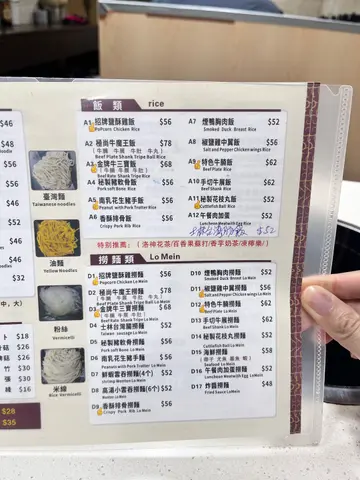 $46
$56
$56
$56
$52
飯 類 rice
A1 招牌鹽酥雞飯 $56
Popcorn Chicken Rice
A2 極尚牛魔王飯 $78
(牛腩 牛展 牛肚 牛丸)
Beef Plate Shank Tripe Ball Rice
A3 金牌牛三寶飯 $68
(牛腩 牛展 牛肚)
Beef Plate Shank Tripe Rice
A4 秘製豬軟骨飯 $56
Pork soft Bone Rice
A5 南乳花生豬手飯 $56
A6 香酥排骨飯 $56
Crispy Pork Rib Rice
A7 煙鴨胸肉飯 $52
Smoked Duck Breast Rice
A8 椒鹽雞中翼飯 $56
Salt and Pepper Chicken wings Rice
A9 特色牛腩飯 $62
Beef Plate Rice
A10 手切牛展飯 $62
Beef Shank Rice
A11 秘製花枝丸飯 $52
Cuttlefish Ball Rice
A12 午餐肉加蛋 $52
Luncheon Meat with Egg Rice
$52
特別推薦:(洛神花茶/百香果蘇打/香芋奶茶/凍檸樂/)
撈麵類 Lo Mein
D1 招牌鹽酥雞撈麵 $56
Popcorn Chicken Lo Mein
D2 極尚牛魔王撈麵 $78
(牛腩 牛展 牛肚 牛丸)
D3 金牌牛三寶撈麵 $68
(牛腩 牛展 牛肚)
D4 士林台灣腸撈麵 $52
Taiwan sausage Lo Mein
D5 秘製豬軟骨撈麵 $56
Pork soft Bone Lo Mein
D6 南乳花生豬手麵 $56
Peanuts with Pork Trotter Lo Mein
D7 鮮蝦雲吞撈麵(6个) $52
shrimp Wonton Lo Mein
D8 高湯小雲吞撈麵(6个) $52
Wonton Lo Mein
D9 香酥排骨撈麵 $56
Crispy Pork Rib Lo Mein
D10 煙鴨胸肉撈麵 $52
Smoked Duck Breast Lo Mein
D11 椒鹽雞中翼撈麵 $56
Salt and Pepper Chicken wings Lo Mein
D12 特色牛腩撈麵 $62
Beef Plate Lo Mein
D13 手切牛展撈麵 $62
Beef Shank Lo Mein
D14 秘製花枝丸撈麵 $52
Cuttlefish Ball Lo Mein
D15 海鮮撈麵 $58
Seafood Lo Mein
D16 午餐肉加蛋撈麵 $52
Luncheon Meat with Egg Lo Mein
D17 炸醬撈麵 $48
Fried Sauce Lo Mein
臺灣麵
Taiwanese noodles
油麵
Yellow Noodles
粉絲
Vermicelli
米線
Rice Vermicelli
中,大)
ト $18
$26
$26
$30
$30
$30
$28
$35